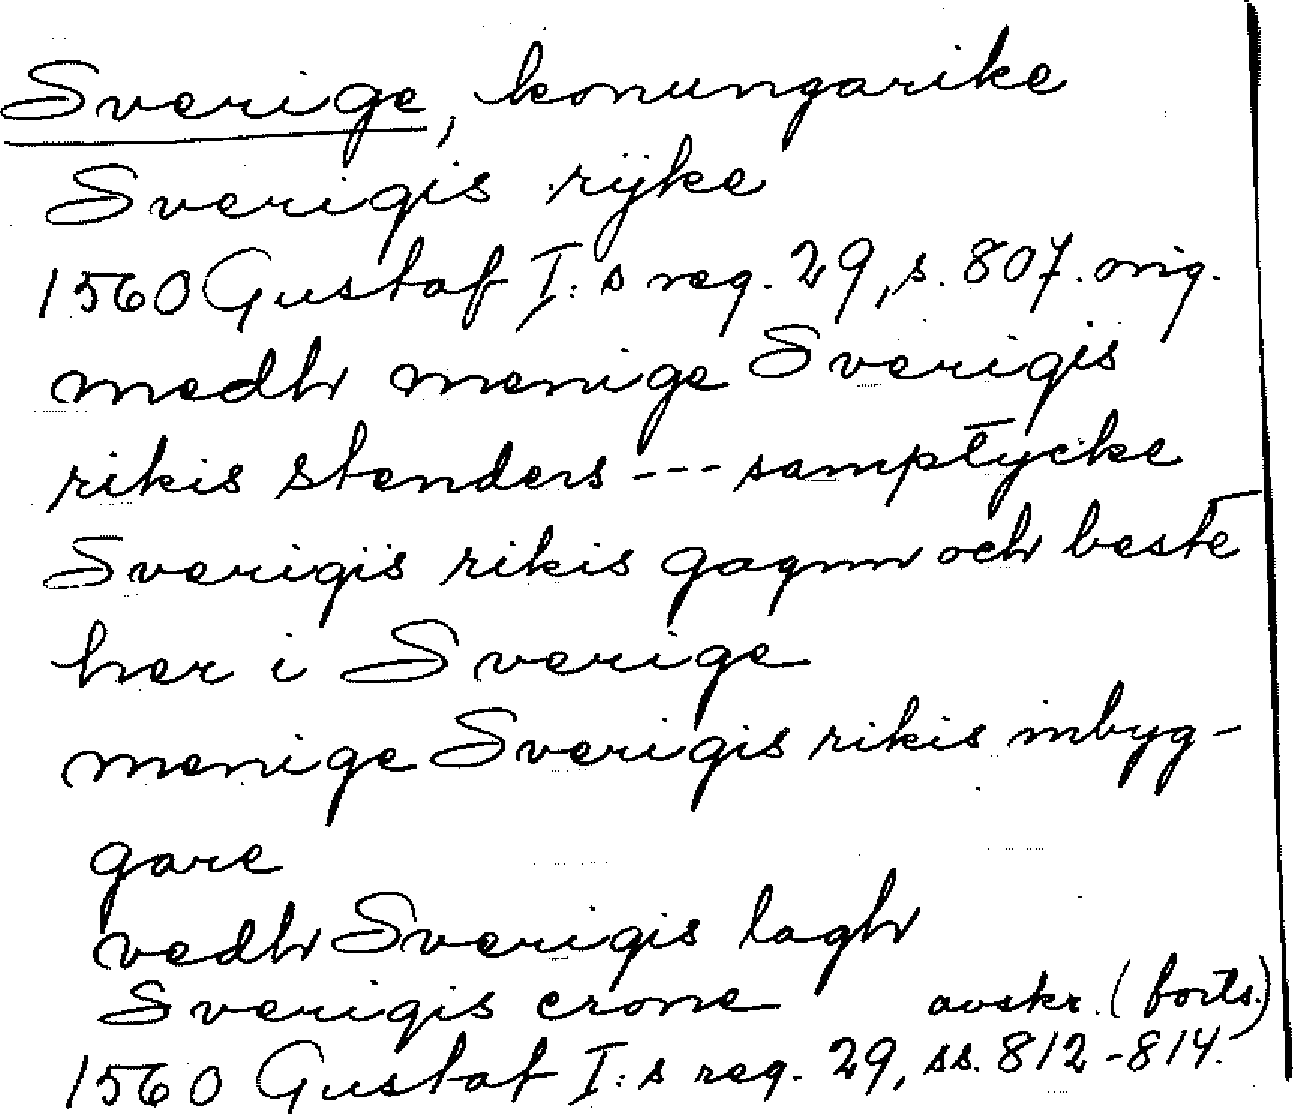 Sverige, konungarike
Sverigis rijke
1560 Gustaf I:s reg. 29, s. 807. orig.
medh menige Sverigis
rikis stenders --- samptycke
Sverigis rikis gagnn och beste
her i Sverige
menige Sverigis rikis inbyg-
gare
vedh Sverigis lagh
Sverigis crone avskr. (forts.)
1560 Gustaf I:s reg. 29, ss. 812-814.